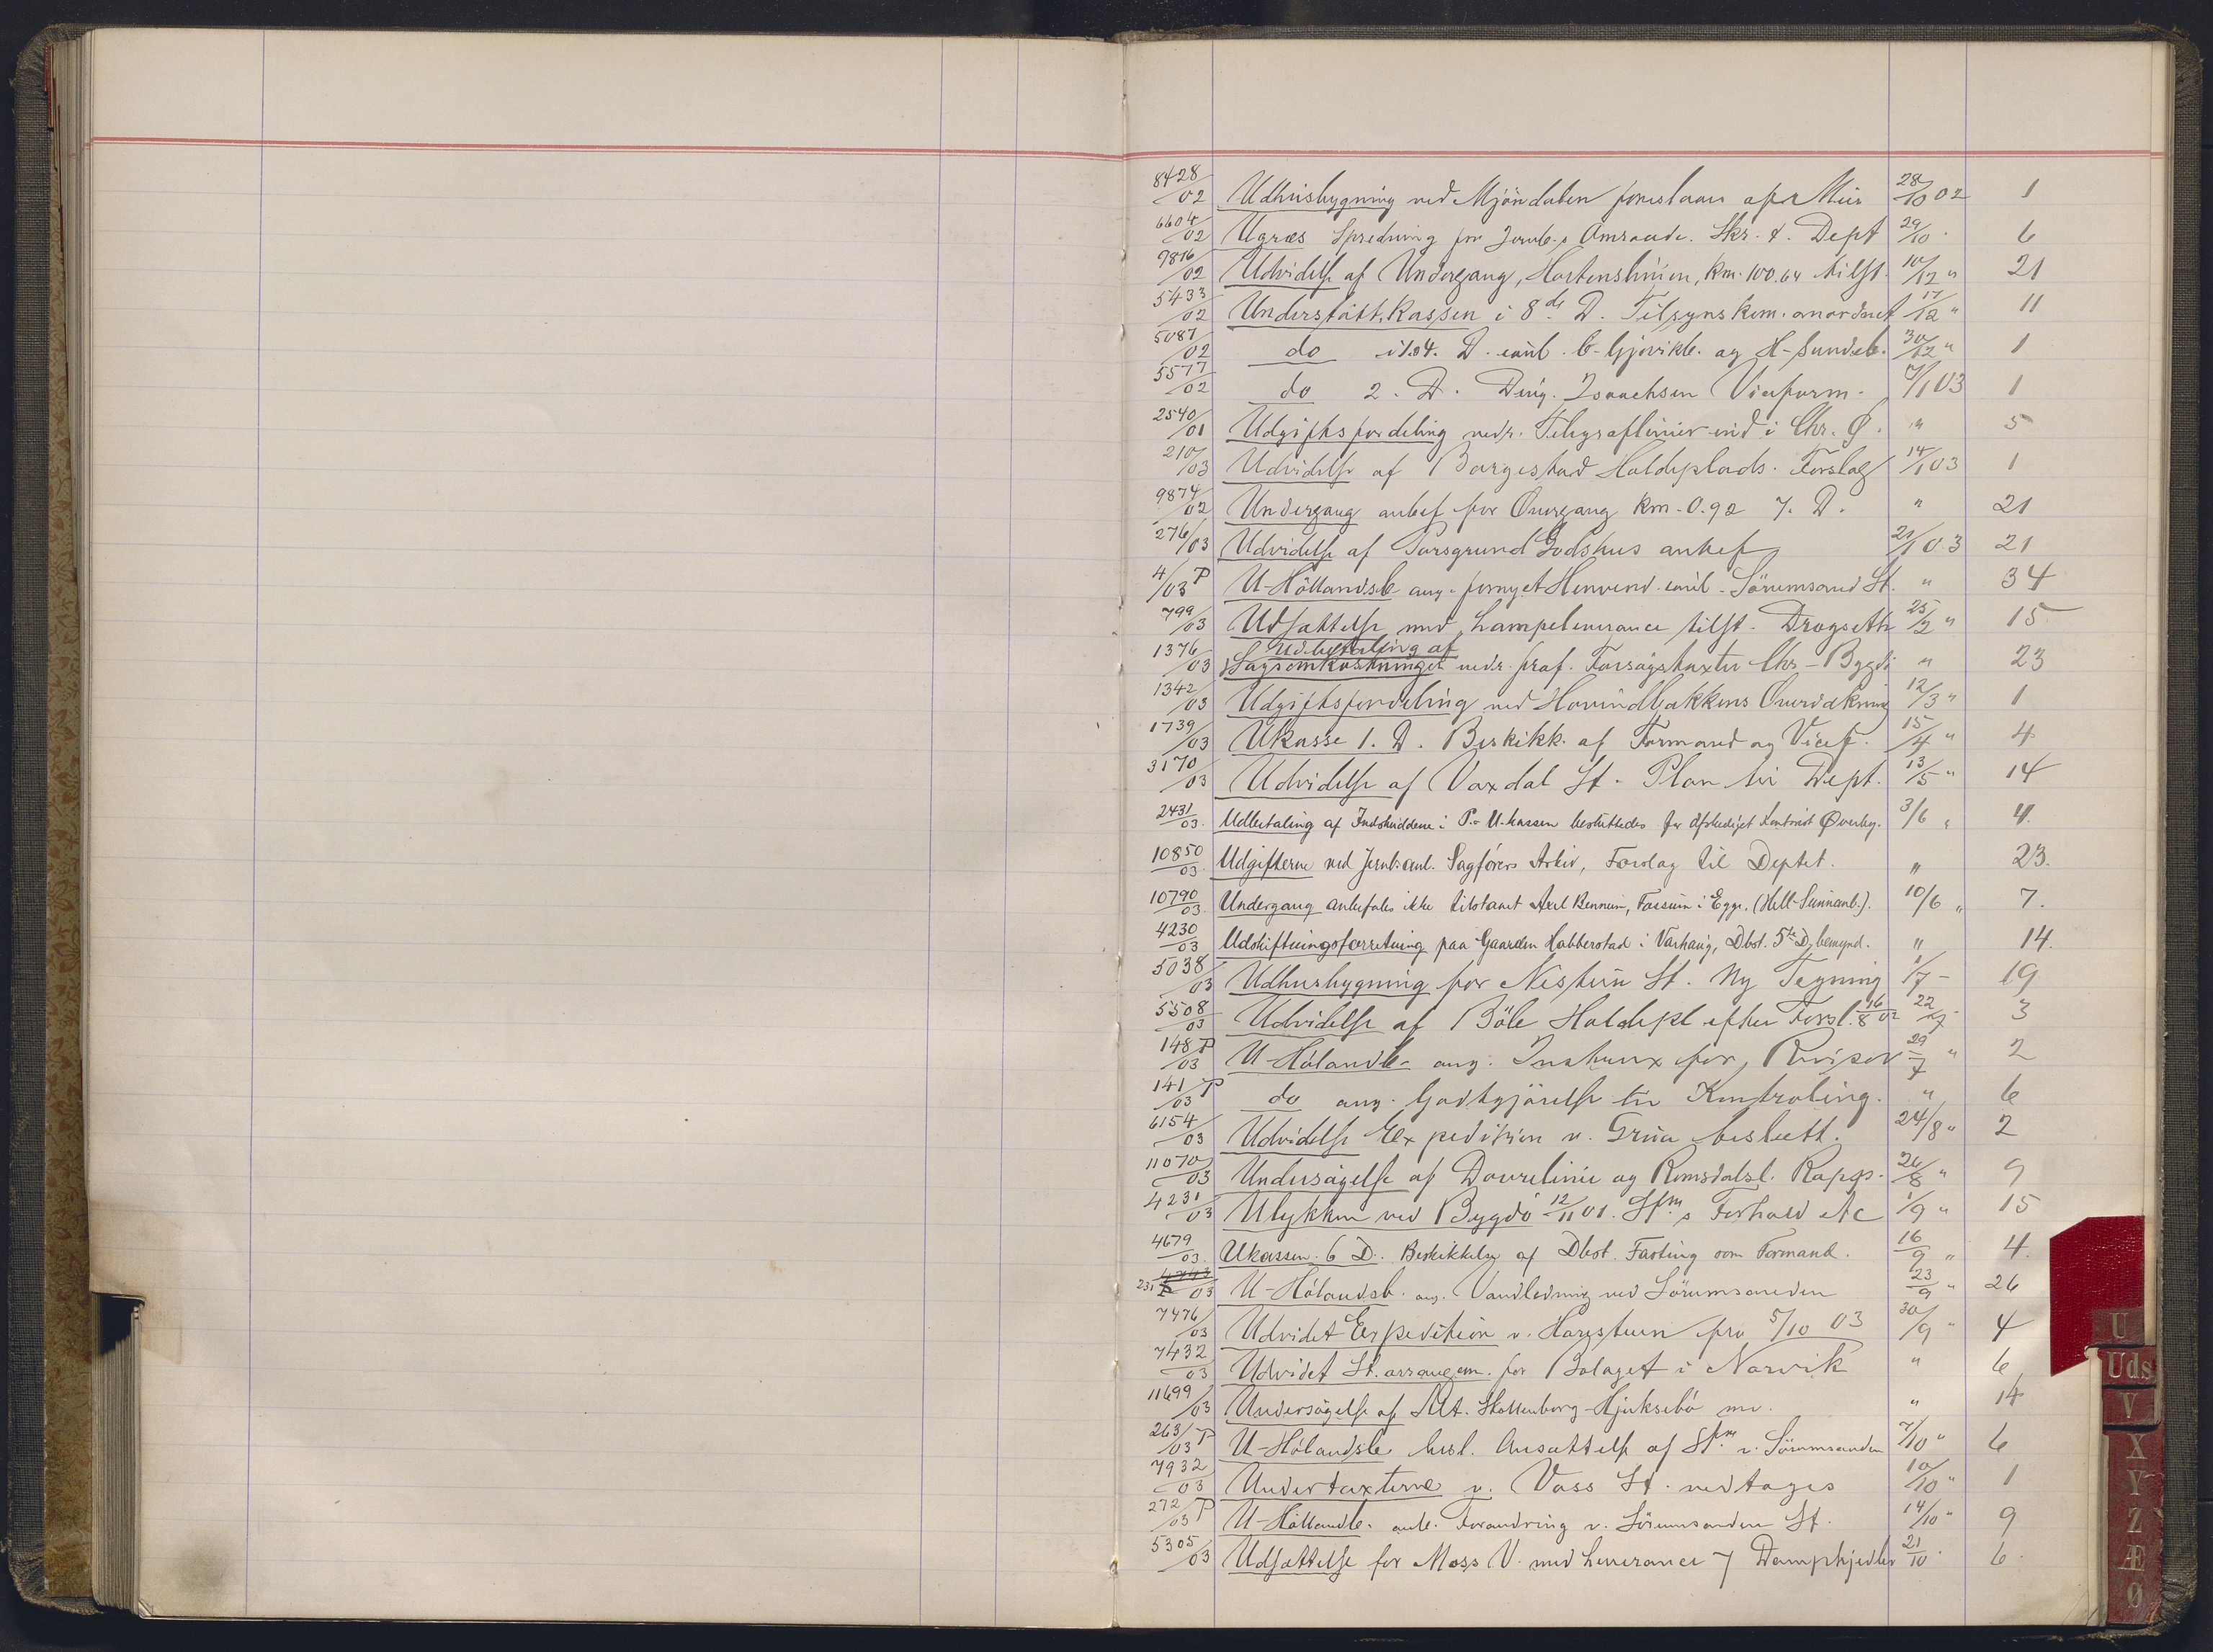 8428/02 Udhusbygning ved Mjöndalen foreslaaes af Mur 28/10 02 1
6604/02 Ugræs Spredning for Jernb.s Omraade. Skr. t. Dept 29/10 " 6
9816/02 Udvidelse af Undergang, Hortenslinien, Km. 100.64 tilst. 10/12 " 21
5433/02 Understøtt.kassen i 8de D. Tilsynskom. anordnet 17/12 " 11
5087/02 do D. anl. Gjøvikb. og H-Sundsb. 30/12 " 1
5577/02 do 2. D. Ding. Isaachsen Viceform. 7/1 03 1
2540/01 Udgiftsfordeling vedr. Telegraflinier ind i Chr. Ø. " 5
210/03 Udvidelse af Borgestad Holdeplads. Forslag 14/1 03 1
9874/02 Undergang anbef for Overgang Km. 0.92 7. D. " 21
276/03 Udvidelse af Porsgrund Godshus anbef 21/1 03 21
4/03 P U-Hölandsb ang. fornyet Henvend. anl. Sörumsand St. " 34
799/03 Udsættelse med Lampeleverance tilst. Drogseth 25/2 " 15
1376/03 Udbetaling af Sagsomkostninger vedr. prof. Forsøgstaxter Chr-Bygdö " 23
1342/03 Udgiftsfordeling ved Hovindbakkens Overdækning 12/3 " 1
1739/03 Ukasse 1. D. Beskikk. af Formand og Vicef. 15/4 " 4
3170/03 Udvidelse af Vaxdal St. Plan til Dept. 13/5 " 14
2431/03. Udbetaling af Indskuddene i P. & U-kassen besluttedes for afskediget Kontorist Øverby. 3/6 " 4.
10850/03. Udgifterne ved Jernb. anl. Sagførers Arkiv, Forslag til Deptet. " 23.
10790/03. Undergang anbefales ikke tilstaaet Axel Bennum, Fossum i Egge. (Hell-Sunnanb.). 10/6 " 7.
4230/03 Udskiftningsforretning paa Gaarden Habberstad i Varhaug, Dbst. 5te D. bemynd. " 14.
5038/03 Udhusbygning for Nestun St. Ny Tegning 1/7 - 19
5508/03 Udvidelse af Böle Holdepl efter Forsl. 16/8 02 22/7 - 3
148 P/03 U-Hölandb. ang. Instrux for Revisor 29/7 " 2
141 P/03 do ang. Godtgjörelse til Kontroling. " 6
6154/03 Udvidelse Expedition v. Grua beslutt. 24/8 " 2
11070/03 Undersøgelse af Dovrelinie og Romsdalsl. Rapp. 26/8 " 9
4231/03 Ulykken ved Bygdö 12/11 01. Stm.s Forhold etc 1/9 " 15
4679/03. Ukassen. 6 D. Beskikkelse af Dbst. Fasting som Formand. 16/9 " 4.
231 P/03 U-Hölandsb. ang. Vandledning ved Sörumsanden 23/9 " 26
7476/03 Udvidet Expedition v. Harestuen fra 5/10 03 30/9 " 4
7432/03 Udvidet St. arrangem. for Bolaget i Narvik " 6
11699/03 Undersøgelse af Alt. Skollenborg-Hjuksebö mv. " 14
263/03 P U-Hölandsb. besl. Ansættelse af Stm. v. Sörumsanden 7/10 " 6
7932/03 Undertaxterne v. Voss St. vedtages 10/10 " 1
272/03 P U-Hölandb. anb. Forandring v. Sörumsanden St. 14/10 " 9
5305/03 Udsættelse for Moss V. med Leverance 7 Dampkjedler 21/10 " 6.
U
Uds
V
X
Y
Z
Æ
Ø